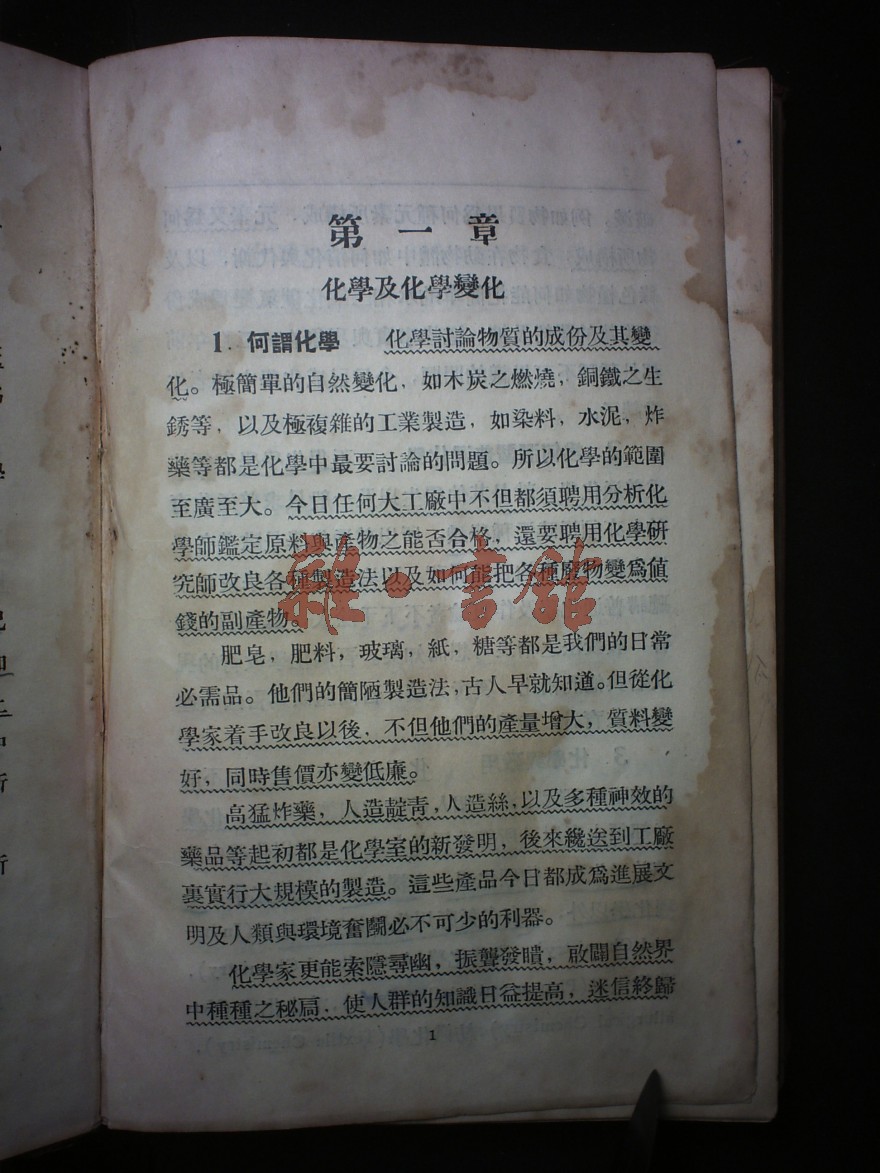 第一章
化學及化學變化
1. 何謂化學 化學討論物質的成份及其變
化。極簡單的自然變化，如木炭之燃燒，銅鐵之生
銹等，以及極複雜的工業製造，如染料，水泥，炸
藥等都是化學中最要討論的問題。所以化學的範圍
至廣至大。今日任何大工廠中不但都須聘用分析化
學師鑑定原料與產物之能否合格，還要聘用化學研
究師改良各種製造法以及如何能把各種廢物變爲值
錢的副產物。
雜·書館
肥皂，肥料，玻璃，紙，糖等都是我們的日常
必需品。他們的簡陋製造法，古人早就知道。但從化
學家着手改良以後，不但他們的產量增大，質料變
好，同時售價亦變低廉。
高猛炸藥，人造靛靑，人造絲，以及多種神效的
藥品等起初都是化學室的新發明，後來纔送到工廠
裏實行大規模的製造。這些產品今日都成爲進展文
明及人類與環境奮鬭必不可少的利器。
化學家更能索隱尋幽，振聾發瞶，啟闢自然界
中種種之秘扃，使人群的知識日益提高，迷信終歸
1